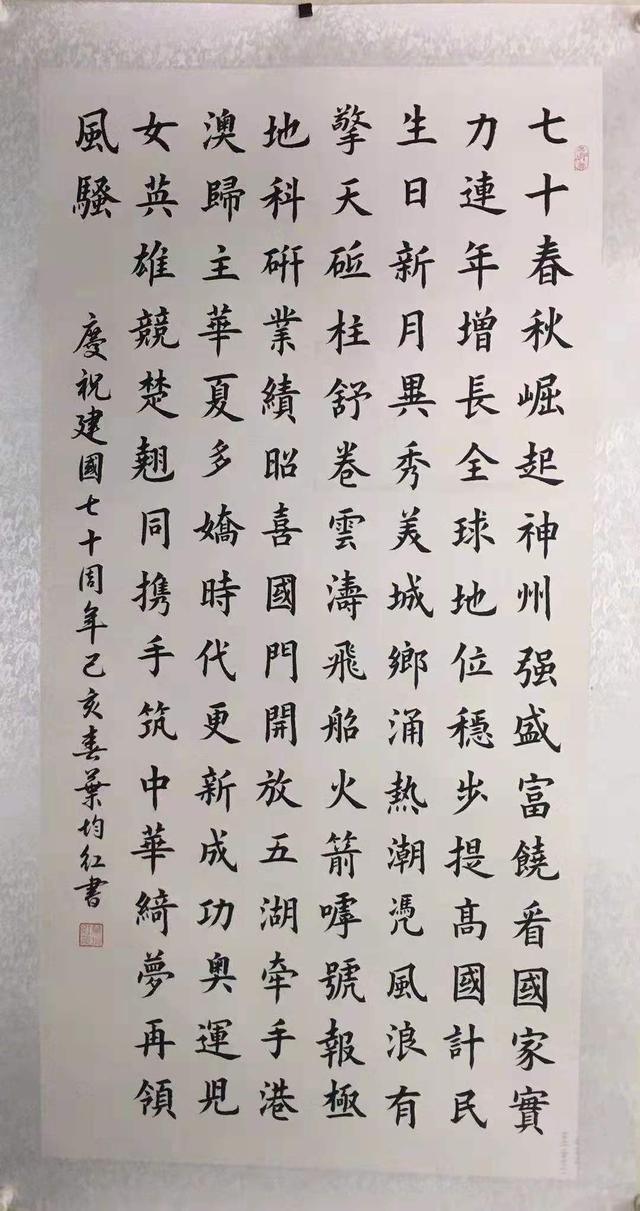 七十春秋崛起神州强盛富饒看國家實
力連年增長全球地位穩步提高國計民
生日新月異秀美城鄉涌熱潮凴風浪有
擎天砥柱舒卷雲濤飛船火箭嘑號報極
地科研業績昭喜國門開放五湖牽手港
澳歸主華夏多嬌時代更新成功奧運兒
女英雄競楚翹同携手筑中華綺夢再領
風騷
慶祝建國七十周年己亥春葉均红書